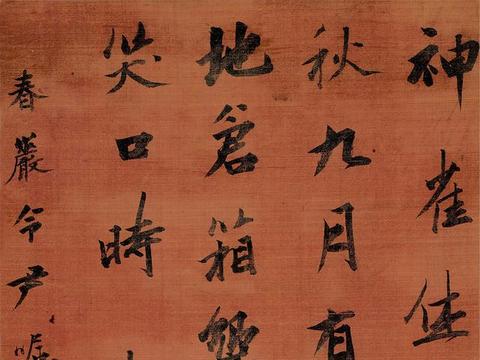 神雀
秋九月有
地倉箱
笑口時
春巖令尹